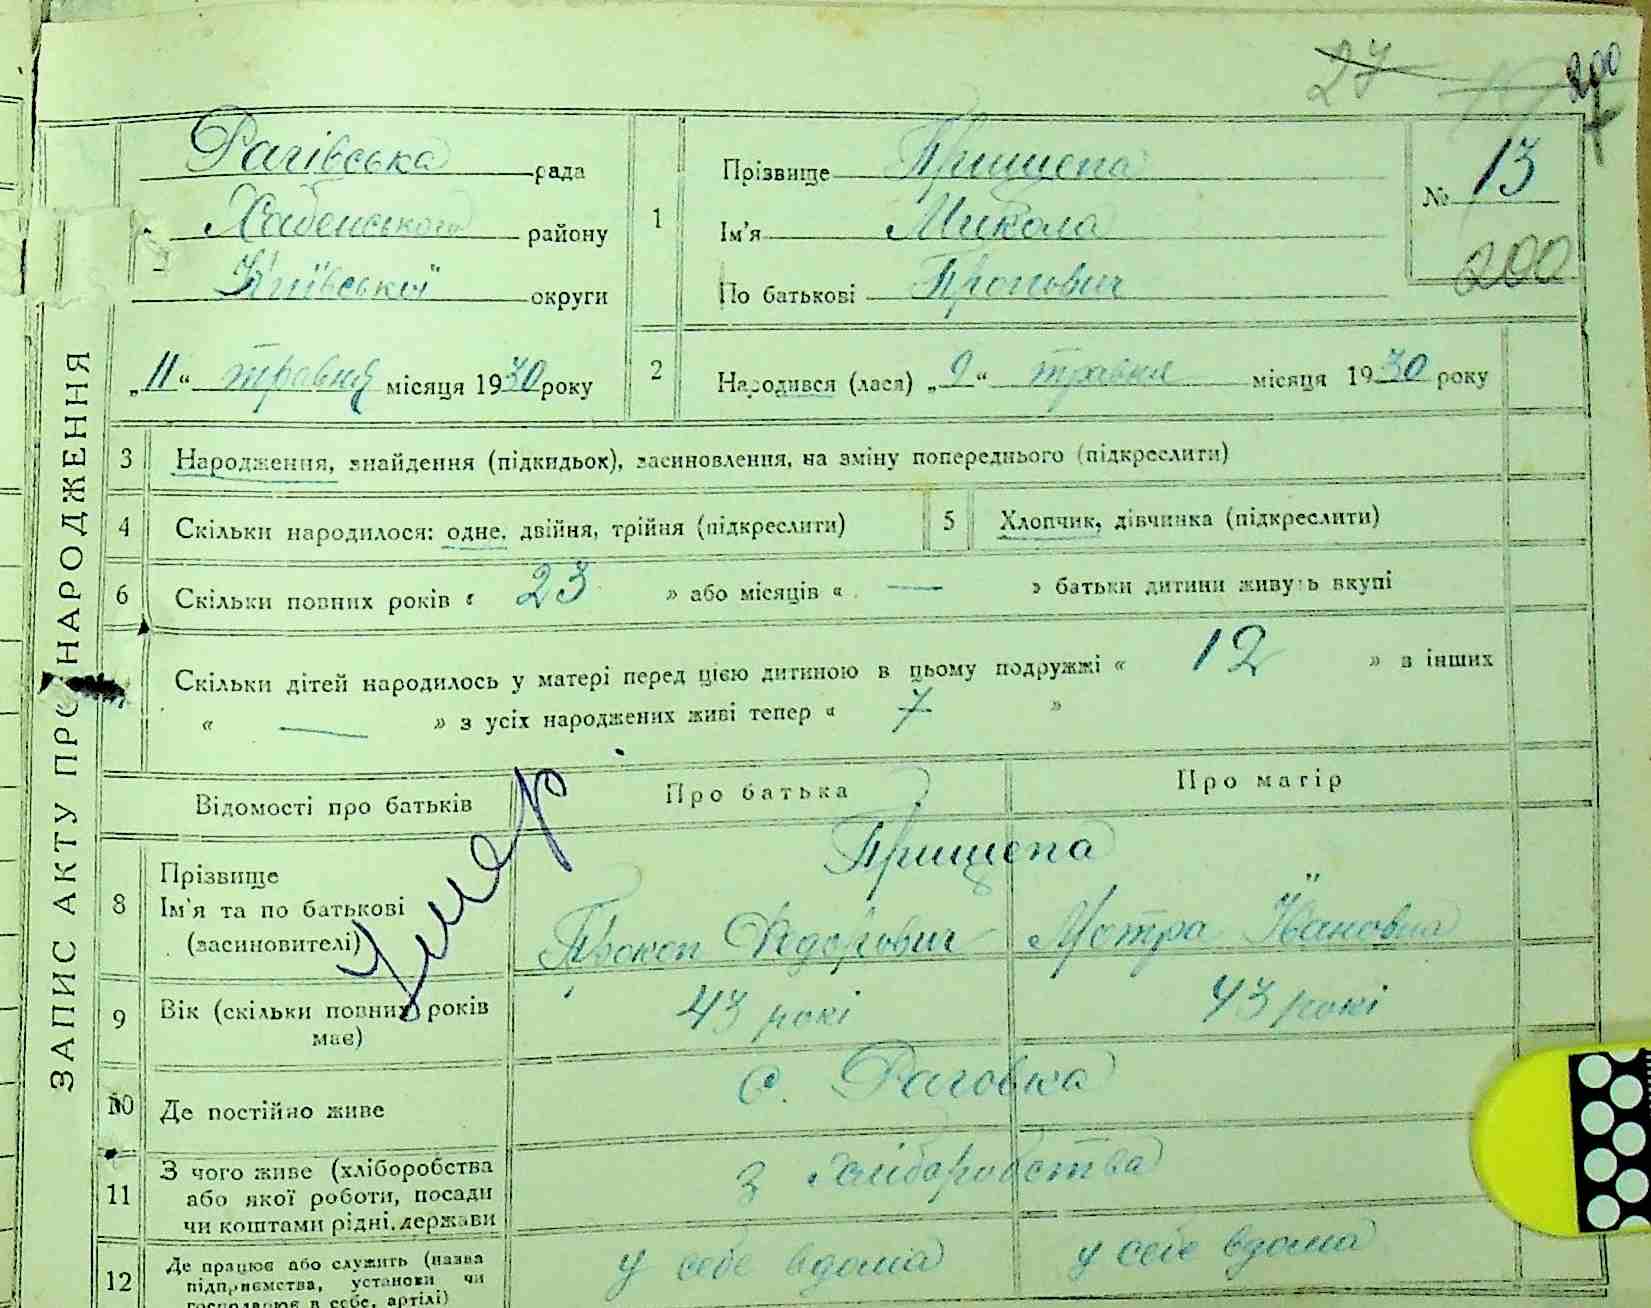 27
200
Рагівська рада
Хабенського району
Київської округи
„11“ травня місяця 1930 року
1
Прізвище Прищепа
Ім'я Микола
По батькові Пропович
№ 13
200
2
Народився (лася) „9“ травня місяця 1930 року
ЗАПИС АКТУ ПРО НАРОДЖЕННЯ
3 Народження, знайдення (підкидьок), засиновлення, на зміну попереднього (підкреслити)
4 Скільки народилося: одне, двійня, трійня (підкреслити) 5 Хлопчик, дівчинка (підкреслити)
6 Скільки повних років « 23 » або місяців « — » батьки дитини живуть вкупі
Скільки дітей народилось у матері перед цією дитиною в цьому подружжі « 12 » з інших
« — » з усіх народжених живі тепер « 7 »
Відомості про батьків Про батька Про матір
Умер
8 Прізвище
Ім'я та по батькові
(засиновителі)
Прищепа
Прокоп Федорович Мотра Івановна
9 Вік (скільки повних років
має)
43 рокі 43 рокі
10 Де постійно живе с. Раговка
11 З чого живе (хліборобства
або якої роботи, посади
чи коштами рідні, держави
з хліборобства
12 Де працює або служить (назва
підприємства, установи чи
господарює в себе, артілі)
у себе вдома у себе вдома